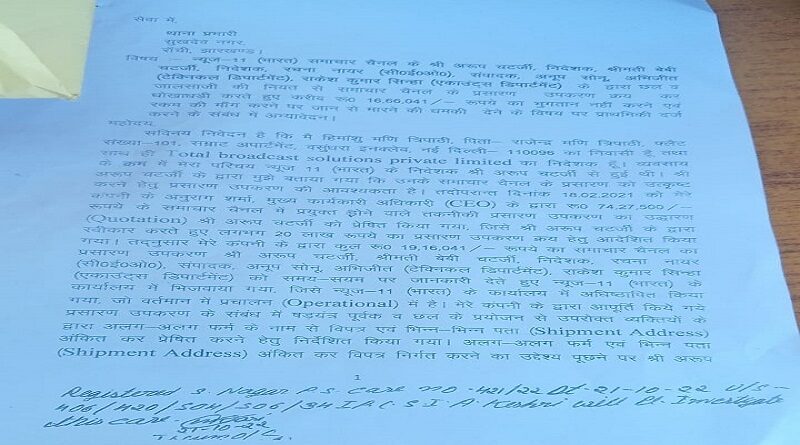 सेवा में,
थाना प्रभारी
सुखदेव नगर,
राँची, झारखण्ड।
विषय :- न्यूज-11 (भारत) समाचार चैनल के श्री अरूप चटर्जी, निदेशक, श्रीमती बेबी
चटर्जी, निदेशक, रचना नायर (सी०ई०ओ०), संपादक, अनूप सोनू, अभिजीत
(टेक्निकल डिपार्टमेंट), राकेश कुमार सिन्हा (एकाउंट्स डिपार्टमेंट) के द्वारा छल व
जालसाजी की नियत से समाचार चैनल के प्रसारण उपकरण क्रय कर
धोखाधड़ी करते हुए करीब रू० 16,66,041/- रूपये का भुगतान नहीं करने एवं
रकम की माँग करने पर जान से मारने की धमकी देने के विषय पर प्राथमिकी दर्ज
करने के संबंध में अभ्यावेदन।
महोदय,
सविनय निवेदन है कि मैं हिमांशु मणि त्रिपाठी, पिता- राजेन्द्र मणि त्रिपाठी, फ्लैट
संख्या-101, सम्राट अपार्टमेंट, वसुंधरा इनक्लेव, नई दिल्ली- 110096 का निवासी हूँ, तथा
साथ ही Total broadcast solutions private limited का निदेशक हूँ। व्यवसाय
के क्रम में मेरा परिचय न्यूज 11 (भारत) के निदेशक श्री अरूप चटर्जी से हुई थी। श्री
अरूप चटर्जी के द्वारा मुझे बताया गया कि उनके समाचार चैनल के प्रसारण को उत्कृष्ट
करने हेतु प्रसारण उपकरण की आवश्यकता है। तदोपरान्त दिनांक 18.02.2021 को मेरे
कंपनी के अनुराग शर्मा, मुख्य कार्यकारी अधिकारी (CEO) के द्वारा रू० 74,27,500/-
रूपये के समाचार चैनल में प्रयुक्त होने वाले तकनीकी प्रसारण उपकरण का उद्धरण
(Quotation) श्री अरूप चटर्जी को प्रेषित किया गया, जिसे श्री अरूप चटर्जी के द्वारा
स्वीकार करते हुए लगभग 20 लाख रूपये का प्रसारण उपकरण क्रय हेतु आदेशित किया
गया। तद्नुसार मेरे कंपनी के द्वारा कुल रू० 19,16,041/- रूपये का समाचार चैनल का
प्रसारण उपकरण श्री अरूप चटर्जी, श्रीमती बेबी चटर्जी, निदेशक, रचना नायर
(सी०ई०ओ०), संपादक, अनूप सोनू, अभिजीत (टेक्निकल डिपार्टमेंट), राकेश कुमार सिन्हा
(एकाउंट्स डिपार्टमेंट) को समय-समय पर जानकारी देते हुए न्यूज-11 (भारत) के
कार्यालय में भिजवाया गया, जिसे न्यूज-11 (भारत) के कार्यालय में अधिष्ठापित किया
गया, जो वर्तमान में प्रचालन (Operational) में है। मेरे कंपनी के द्वारा आपूर्ति किये गये
प्रसारण उपकरण के संबंध में षडयंत्र पूर्वक व छल के प्रयोजन से उपरोक्त व्यक्तियों के
द्वारा अलग-अलग फर्म के नाम से विपत्र एवं भिन्न-भिन्न पता (Shipment Address)
अंकित कर प्रेषित करने हेतु निर्देशित किया गया। अलग-अलग फर्म एवं भिन्न पता
(Shipment Address) अंकित कर विपत्र निर्गत करने का उद्देश्य पूछने पर श्री अरूप
1
Registered S. Nagar P.S. Case no -421/22 Dt-21-10-22 U/S-
406/420/504/506/34 I.P.C. S.I A. Keshri will Pl. Investigate
this case.
21-10-22